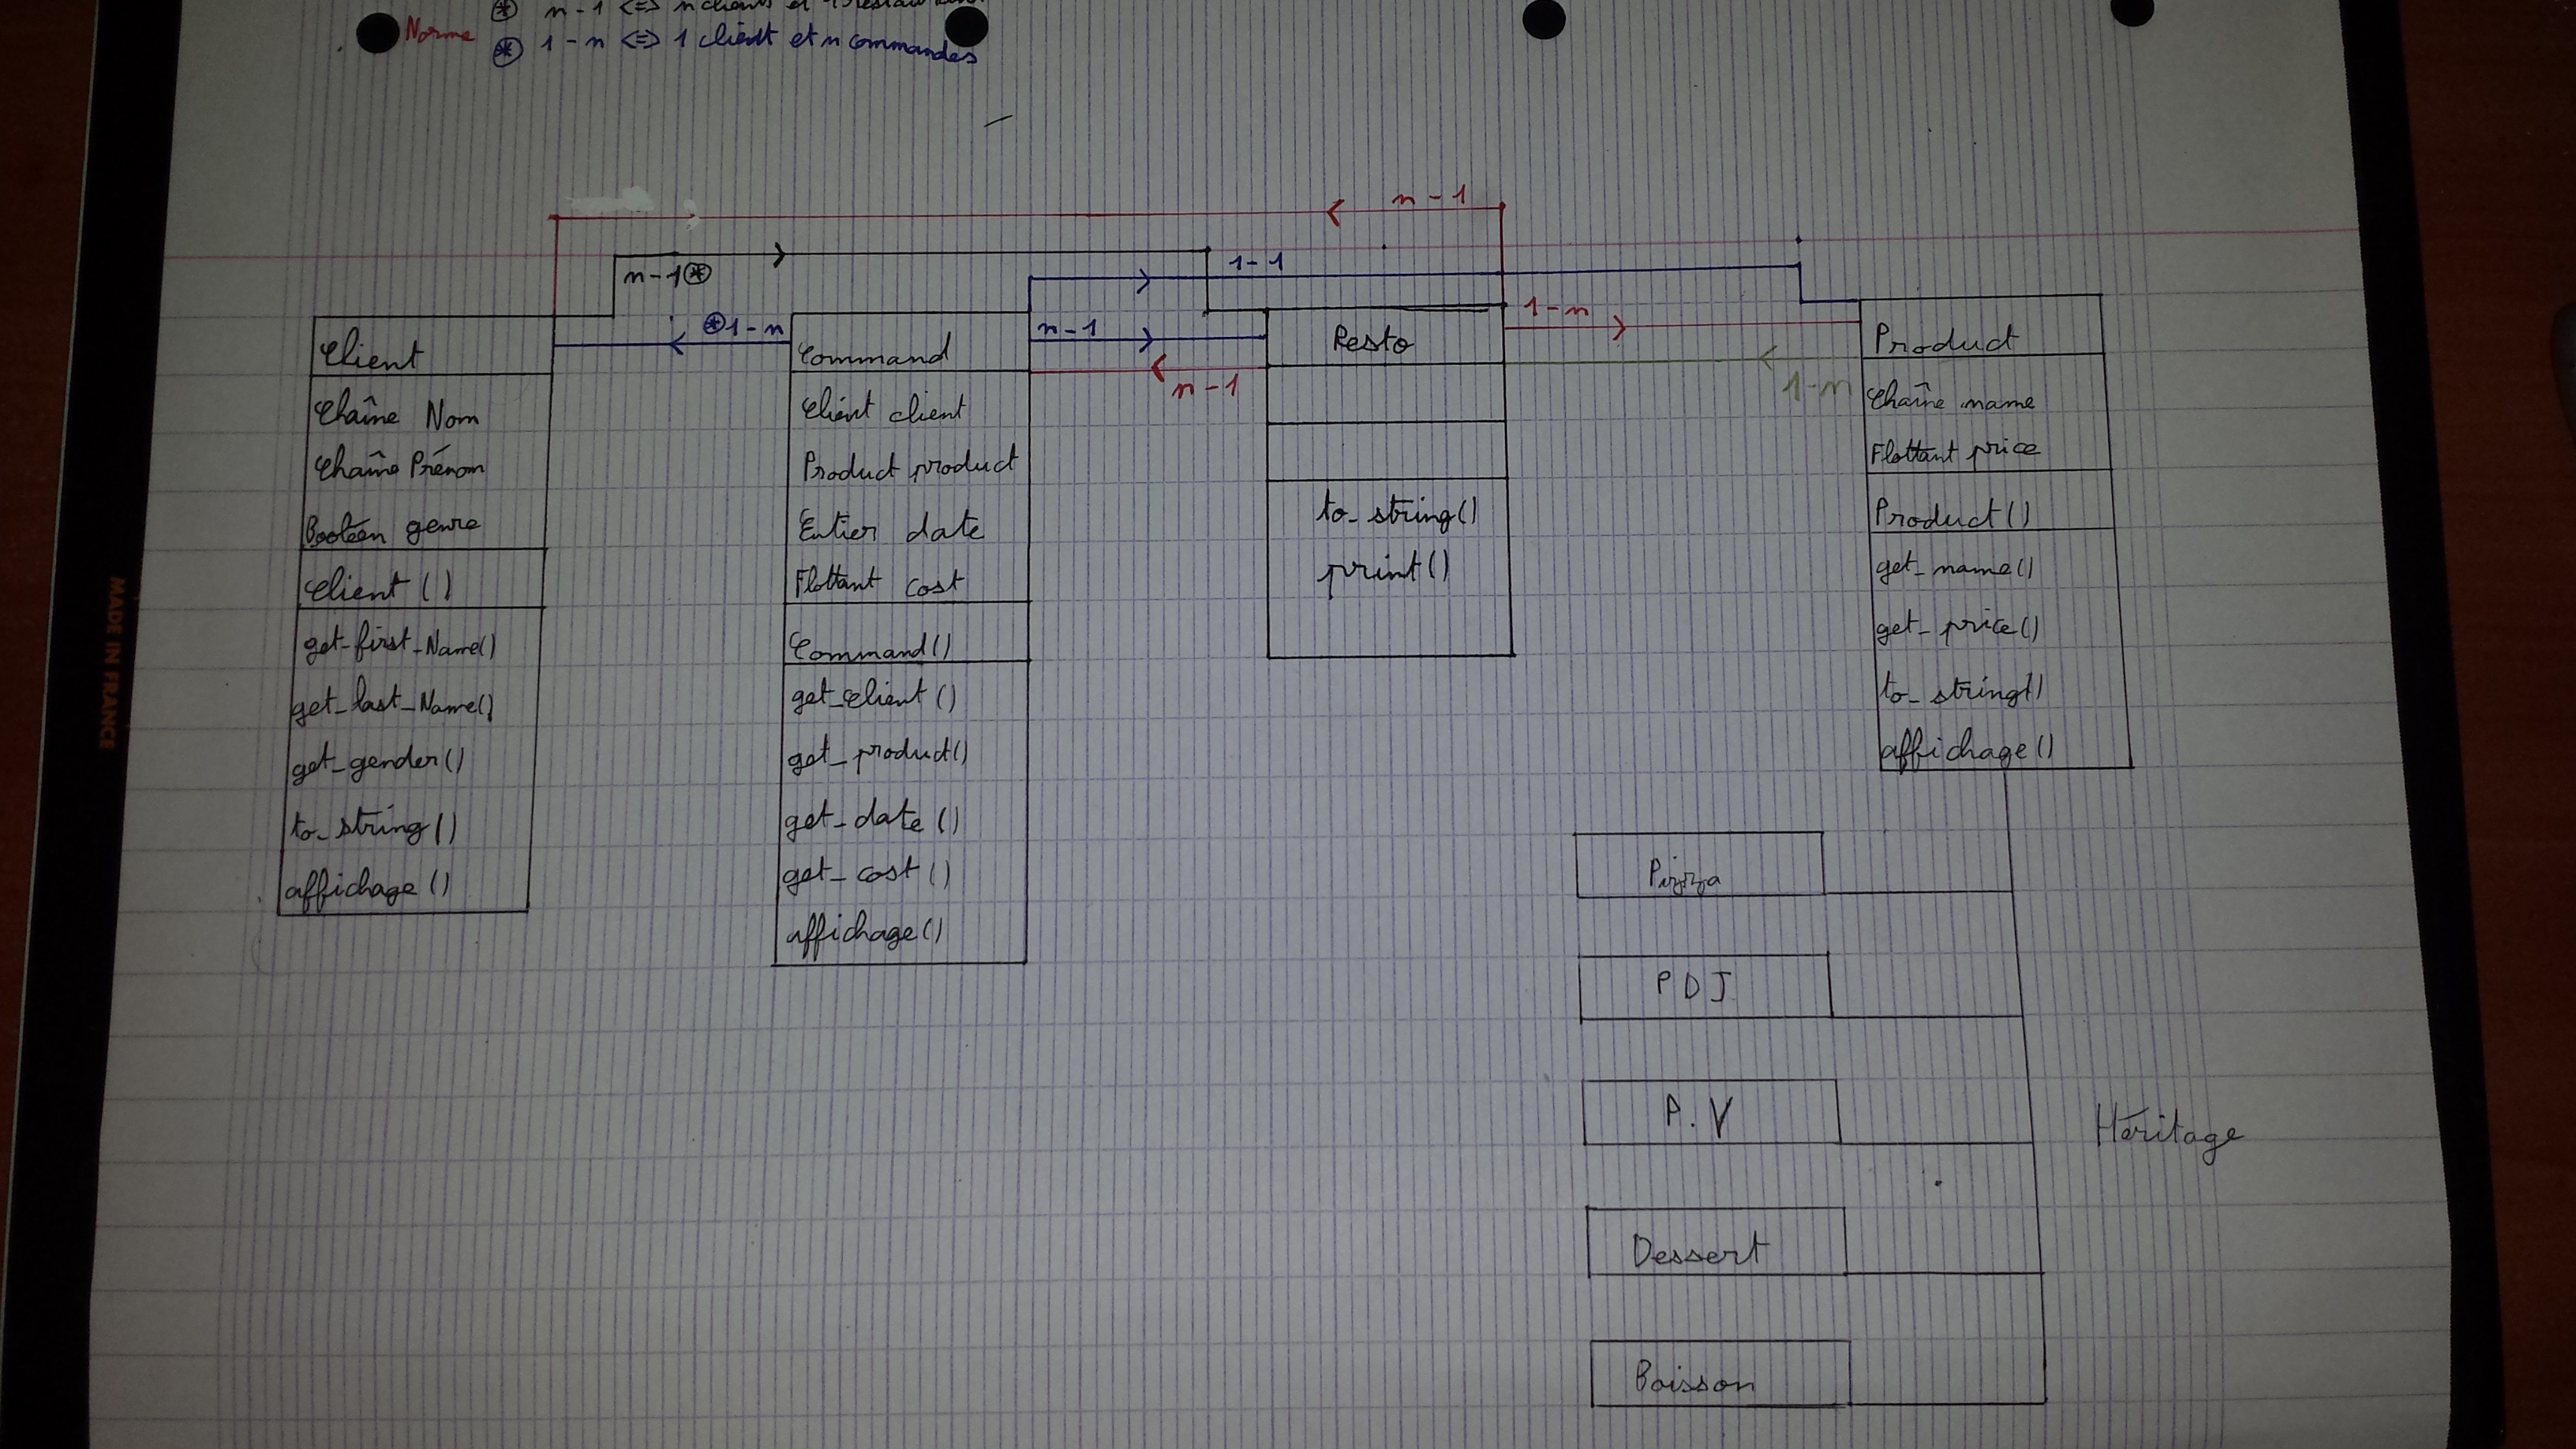 n-1 <=> n clients et 1 restaurant
Norme
1-n <=> 1 client et n commandes
n-1
n-1
1-1
1-n
n-1
1-n
n-1
1-n
Client
Chaîne Nom
Chaîne Prénom
Booléen genre
Client ()
get_first_Name()
get_last_Name()
get_gender()
to_string()
affichage()
Command
Client client
Product product
Entier date
Flottant cost
Command()
get_client()
get_product()
get_date()
get_cost()
affichage()
Resto
to_string()
print()
Product
Chaîne name
Flottant price
Product()
get_name()
get_price()
to_string()
affichage()
Pizza
PDJ
P.V
Dessert
Boisson
Héritage
MADE IN FRANCE